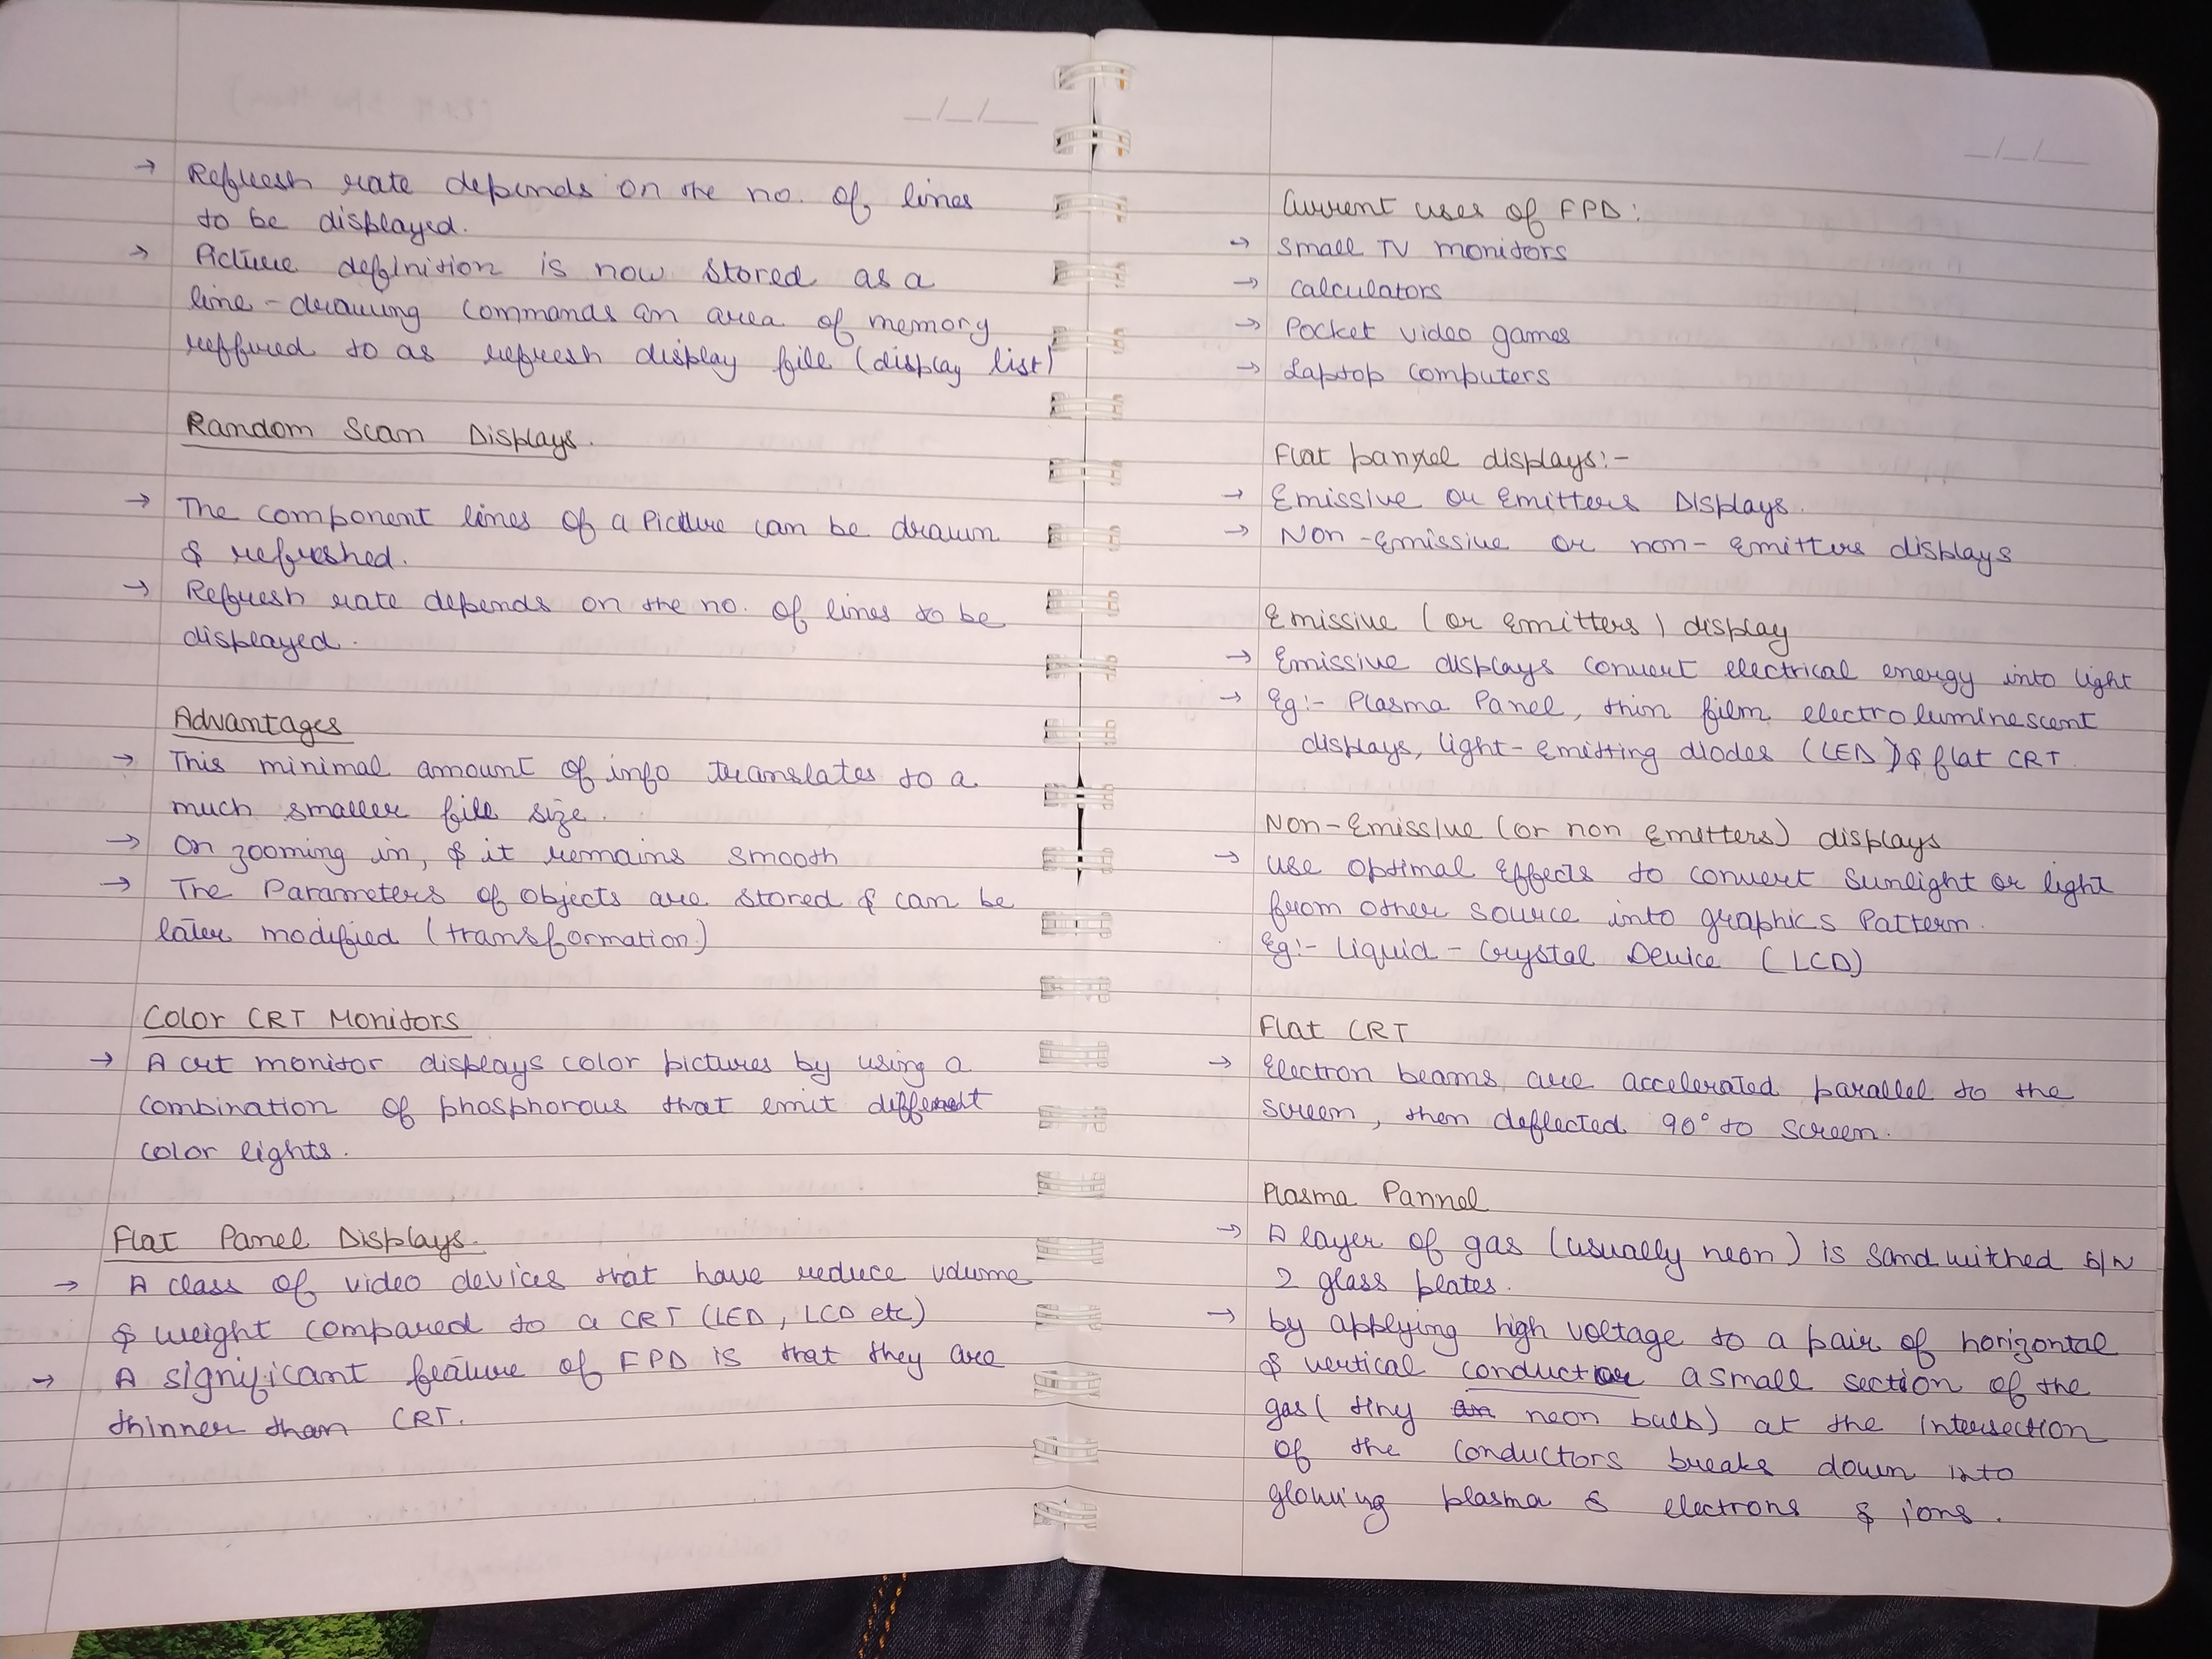 → Refresh rate depends on the no. of lines
to be displayed.
→ Picture definition is now stored as a
line-drawing commands an area of memory
reffured to as refresh display file (display list)
Random Scan Displays.
→ The component lines of a Picture can be drawn
& refreshed.
→ Refresh rate depends on the no. of lines to be
displayed.
Advantages
→ This minimal amount of info translates to a
much smaller file size.
→ On zooming in, & it remains smooth
→ The Parameters of objects are stored & can be
later modified (transformation)
Color CRT Monitors
→ A crt monitor displays color pictures by using a
combination of phosphorous that emit different
color lights.
Flat Panel Displays.
→ A class of video devices that have reduce volume
& weight compared to a CRT (LED, LCD etc)
→ A significant feature of FPD is that they are
thinner than CRT.
Current uses of FPD:
→ Small TV monitors
→ Calculators
→ Pocket video games
→ Laptop computers
Flat pannel displays:-
→ Emissive or Emitters Displays.
→ Non-Emissive or non-Emitters displays
Emissive (or Emitters) display
→ Emissive displays convert electrical energy into light
→ Eg:- Plasma Panel, thin film electroluminescent
displays, light-Emitting diodes (LED) & flat CRT
Non-Emissive (or non Emitters) displays
→ use optimal Effects to convert Sunlight or light
from other source into graphics Pattern.
Eg:- Liquid-Crystal Device (LCD)
Flat CRT
→ Electron beams are accelerated parallel to the
screen, then deflected 90° to screen.
Plasma Pannel
→ A layer of gas (usually neon) is sandwitched b/w
2 glass plates.
→ by applying high voltage to a pair of horizontal
& vertical conductor a small section of the
gas (tiny neon bulb) at the intersection
of the conductors breaks down into
glowing plasma electrons & ions.